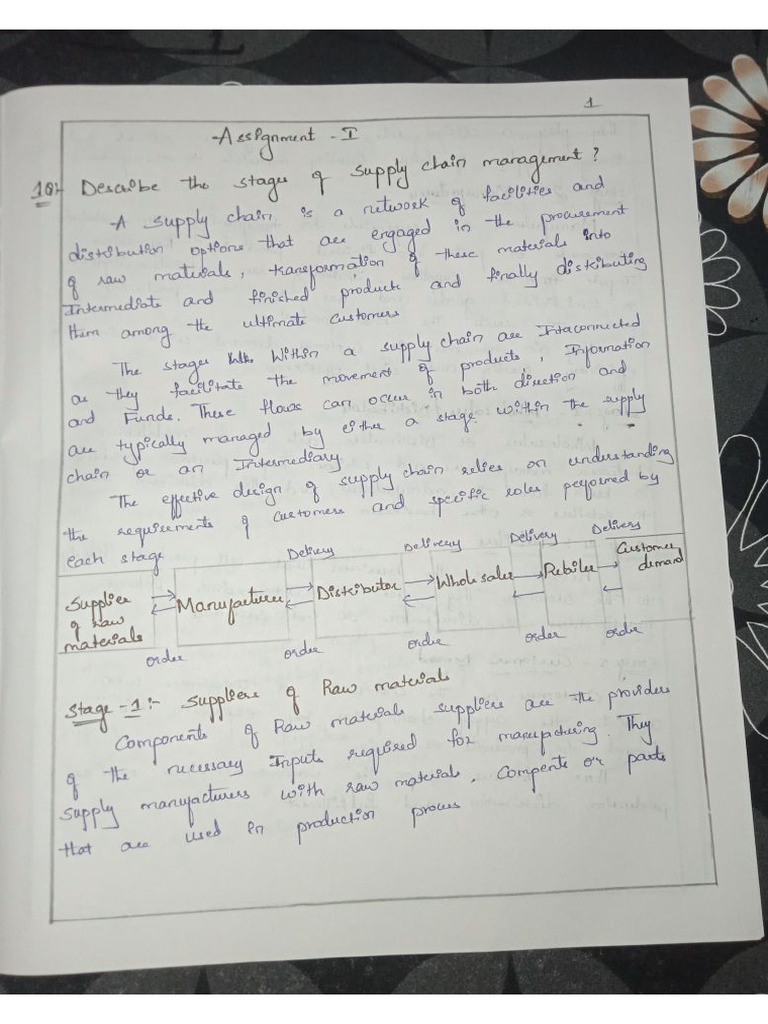 1
Assignment - I
1Q)- Describe the stages of supply chain management ?
A supply chain is a network of facilities and
distribution options that are engaged in the procurement
of raw materials, transformation of these materials into
Intermediate and finished products and finally distributing
them among the ultimate customers
The stages Within a supply chain are Intaconnected
as they facilitate the movement of products, Information
and Funds. These flows can occur in both direction and
are typically managed by either a stage within the supply
chain or an Intermediary
The effective design of supply chain relies on understanding
the requirements of customers and specific roles performed by
each stage
Delivery Delivery Delivery Delivery
Supplier of Raw materials Manufacturer Distributor Wholesaler Retailer Customer demand
order order order order order
Stage - 1 :- Suppliers of Raw materials
Components of Raw materials suppliers are the providers
of the necessary Inputs required for manufacturing. They
supply manufacturers with raw materials, Compents or parts
that are used in production process